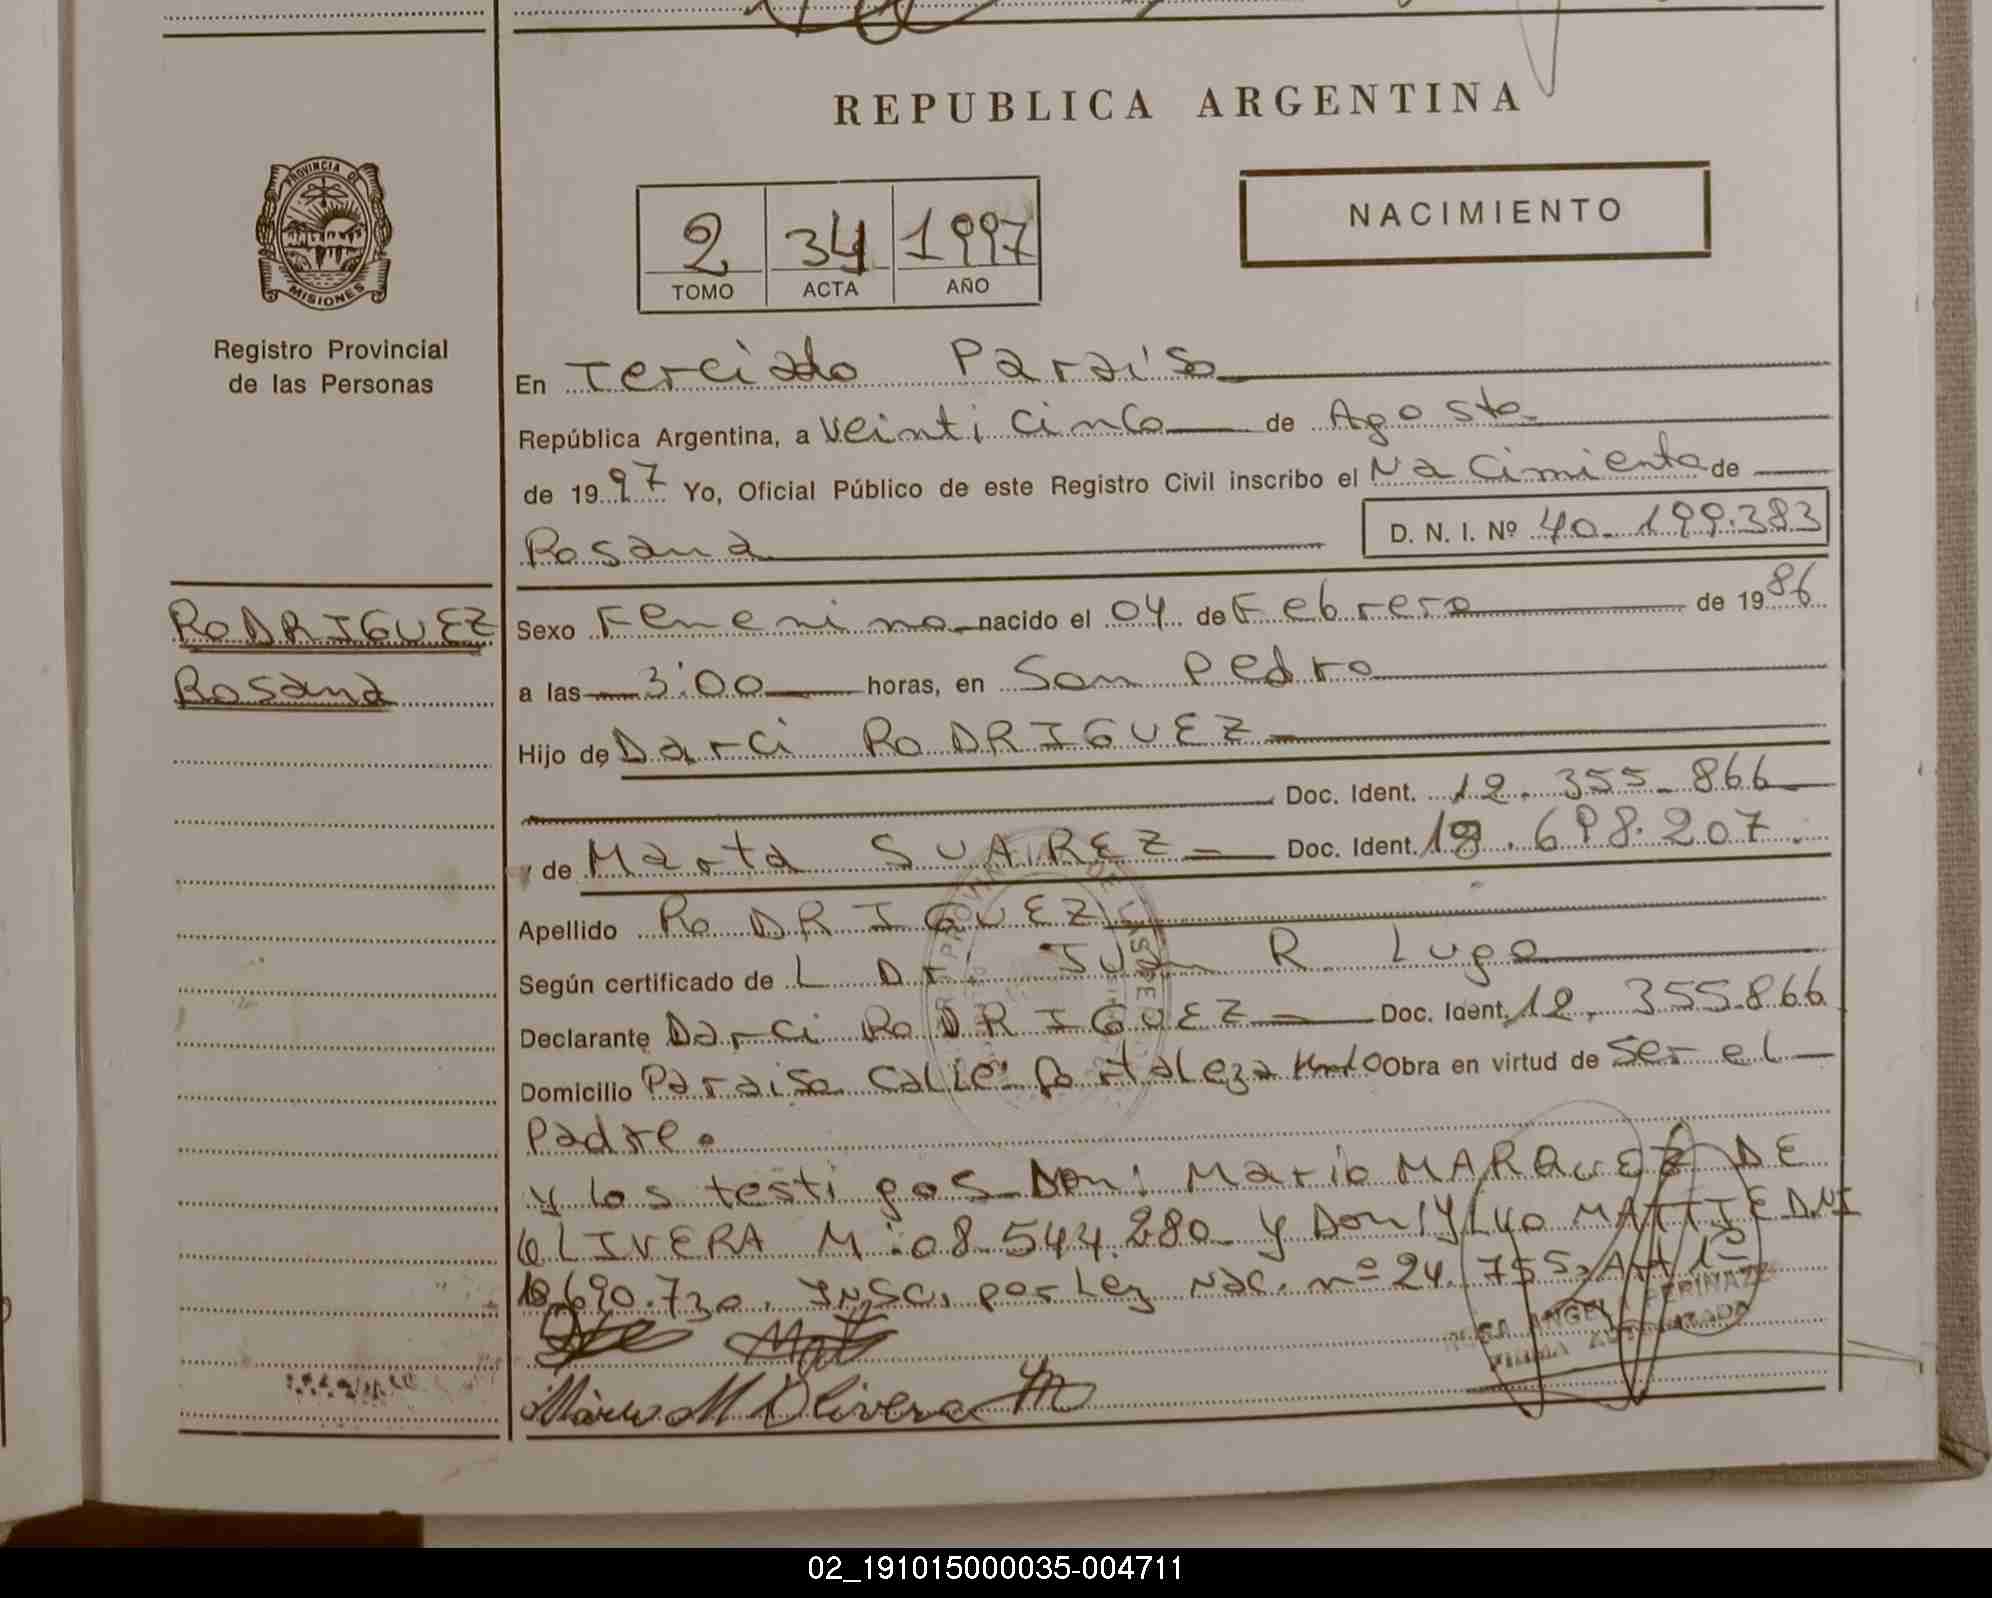 REPUBLICA ARGENTINA
PROVINCIA DE
MISIONES
Registro Provincial
de las Personas
2 34 1997
TOMO ACTA AÑO
NACIMIENTO
En Terciado Paraiso
República Argentina, a Veinti cinco de Agosto
de 1997 Yo, Oficial Público de este Registro Civil inscribo el Nacimiento de
Rosana D. N. I. Nº 40.199.383
RODRIGUEZ
Rosana
Sexo Femenino nacido el 04 de Febrero de 1986
a las 3:00 horas, en San Pedro
Hijo de Darci RODRIGUEZ
Doc. Ident. 12.355.866
y de Marta SUAREZ Doc. Ident. 18.698.207.
Apellido RODRIGUEZ
Según certificado de L Dr. Juan R Lugo
Declarante Darci RODRIGUEZ Doc. Ident. 12.355.866
Domicilio Paraiso Calle: Fortaleza Obra en virtud de Ser el
Padre.
y los testigos Don: Mario MARQUEZ DE
OLIVERA M:08.544.280 y Don: MATTJE DNI
18.690.730. INSC. por Ley Nac. nº 24.755. Art 1º
ROSA ANGELA PERINAZZO
FIRMA AUTORIZADA
Mario M Olivera
02_191015000035-004711